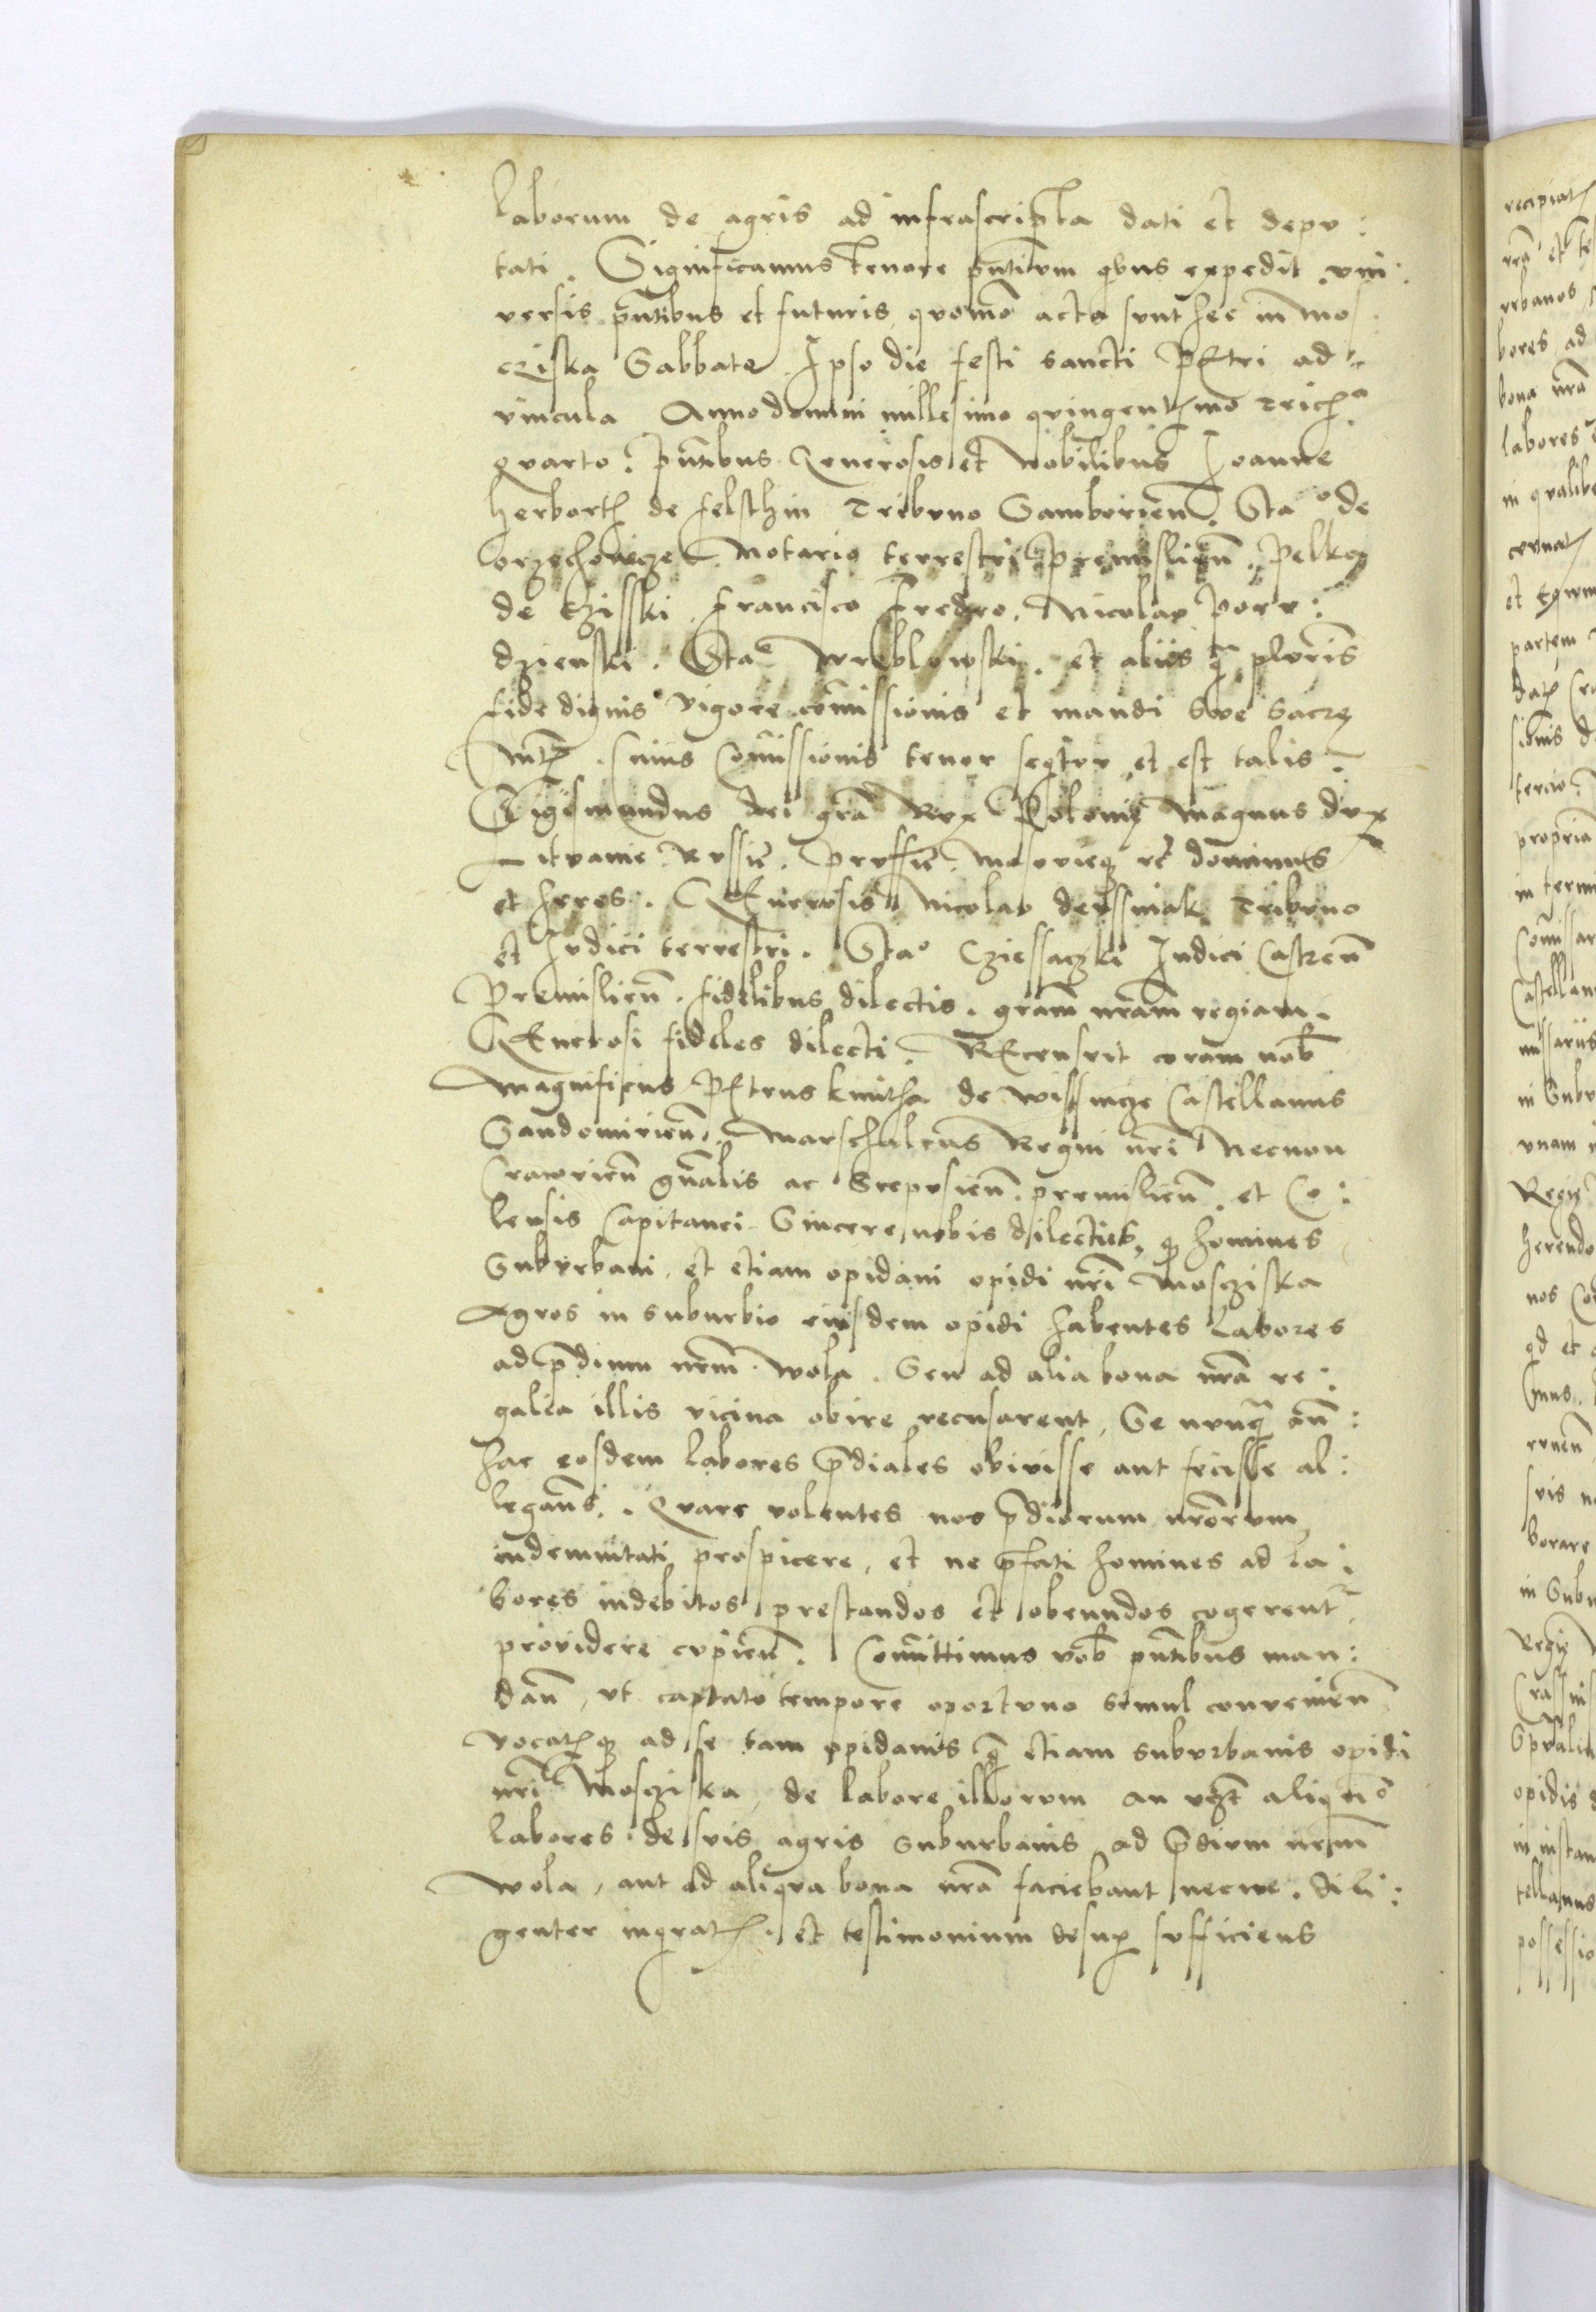 laborum de agris ad infrascripta dati et depu:
tati. Significamus tenore pn̄tium qbus expedit, uni:
versis pn̄tibus et futuris, quomō acta sunt hec in Mos
cziska Sabbato Ipso die festi sancti Petri ad
vincula Anno domini millesimo quingentmo tric
quarto. pn̄tibus Generosis et Nobilibus Joanne
herbort de felsthin Tribuno Samborien̄. Stao de
orzechowcze Notario terrestri Premislien̄. Pelka
de, francisco fredro, Nicolao poru:
dzienski. Sta Wroblowski. et aliis q̄ pluris
fide dignis vigore cōmissionis et mandi sue sacre
Mtis. Cuius Cōmissionis tenor seqtur et est talis.
Sigismundus dei grā Rex Polonie Magnus dux
Lituanie. Russie. Prussie. Masovieq rc̄ dominus
et heres. Generosis Nicolao derssniak Tribuno
et Judici terrestri. Stao Cziessaczki Judici Castren̄
Premislien̄. fidelibus dilectis. grām nrām regiam.
Generosi fideles dilecti. Recensuit coram nob̄
magnificus Petrus kmitha de wissnicze Castellanus
Sandomirien̄. Marschalcus Regni nrī Necnon
Cracovien̄ gn̄alis ac Scepusien̄. premislien̄. et Co:
lensis Capitanei Sincere nobis dilectis, q homines
Suburbani, et etiam opidani opidi nrī Mosciska
Agros in suburbio eiusdem opidi habentes labores
ad p̄dium nrm̄ Wola. Seu ad alia bona nrā re:
galia illis vicina obire recusarent, Se nunq̄ an̄:
hac eosdem labores p̄diales obivisse aut fecisse al:
legan̄s. Quare volentes nos p̄diorum nrōrum
indemnitati prospicere, et ne p̄fati homines ad la:
bores indebitos prestandos et obeundos cogerent
providere cupien̄. Cōmittimus vob̄ pn̄tibus man:
dan̄, ut captato tempore oportuno simul convenien̄
vocatq ad se tam opidanis q̄ etiam suburbanis opidi
nrī Mosciska, de labore illorum an
labores de suis agris suburbanis ad p̄dium nrm̄
Wola, aut ad aliqua bona nrā faciebant necne. dili:
genter inqrat. et testimonium desup sufficiens